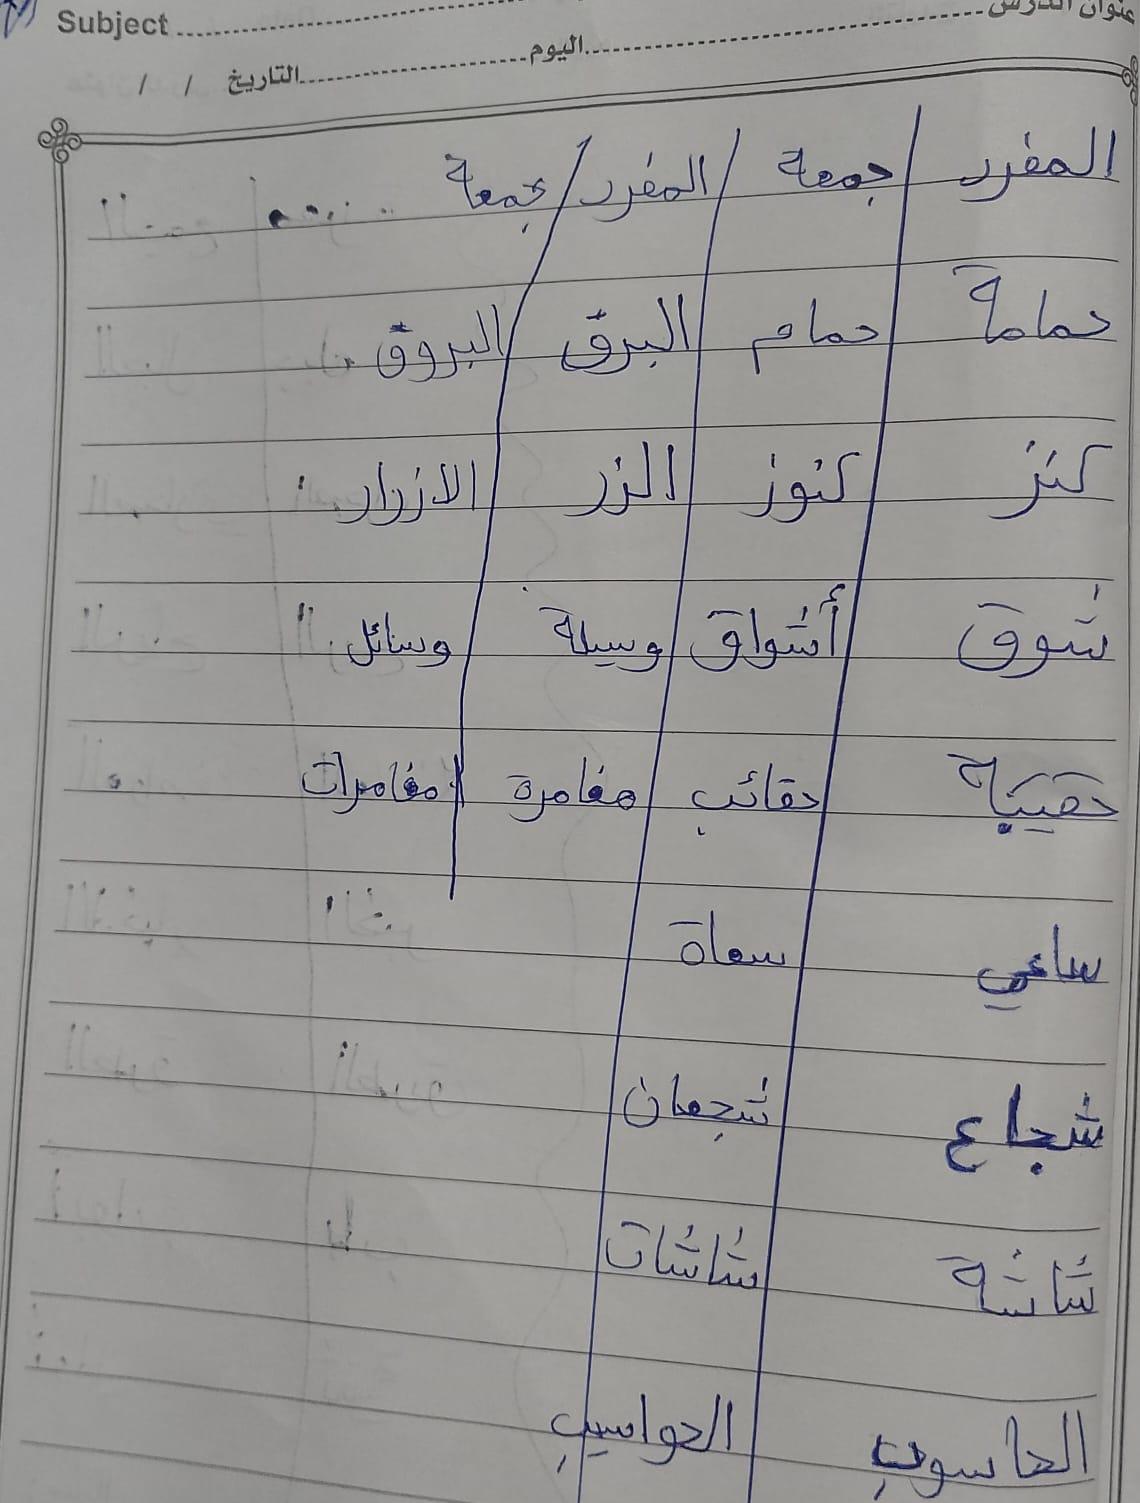 Subject عنوان الدرس
التاريخ / / اليوم
المفرد / جمعة / المفرد / جمعة
حمامة حمام البرق البروق
كنز كنوز الزر الازرار
شوق أشواق وسيلة وسائل
حقيبة حقائب مغامرة مغامرات
ساعي سعاة
شجاع شجعان
شاشة شاشات
الحاسوب الحواسيب